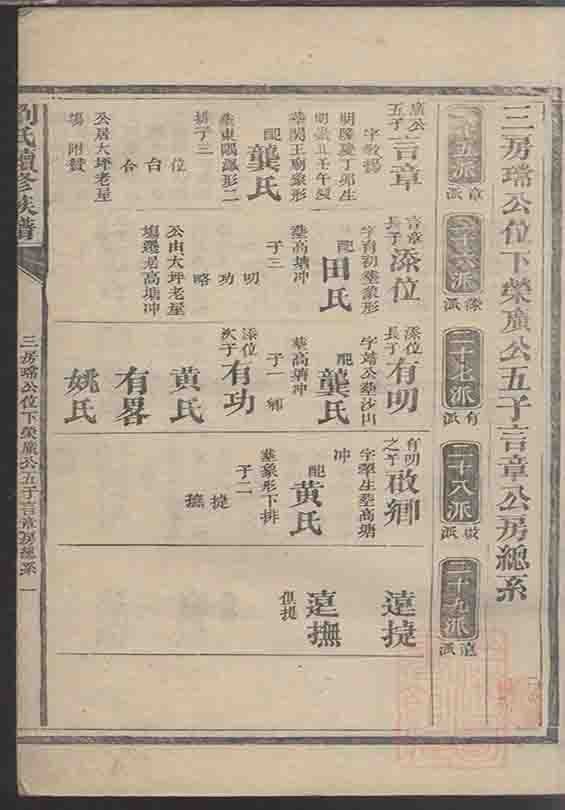 三房瑞公位下榮廣公五子言章公房總系
二十五派
章派
二十六派
添派
二十七派
有派
二十八派
啟派
二十九派
遠派
廣公
五子
言章
字敎揚
明隆慶丁卯生
明崇 丑壬午歿
葬関王廟象形
配
龔氏
葬東陽 形二
排子三
位
台
合
公居大坪老屋
塲附贊
言章
長子
添位
字育初葬象形
配
田氏
葬高塘冲
子三
明
功
略
公由大坪老屋
塲遷居高塘冲
添位
長子
有明
字靖公葬沙山
配
龔氏
葬高塘冲
子一
卿
添位
次子
有功
黃氏
有畧
姚氏
有明
之子
啟卿
字犀生葬高塘
冲
配
黃氏
葬象形下排
子二
㨗
撫
遠㨗
遠撫
俱㨗
劉氏續修族譜
三房瑞公位下榮廣公五子言章房總系
一